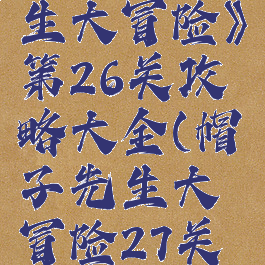 生大冒险》
第26关攻
略大全(帽
子先生大
冒险27关